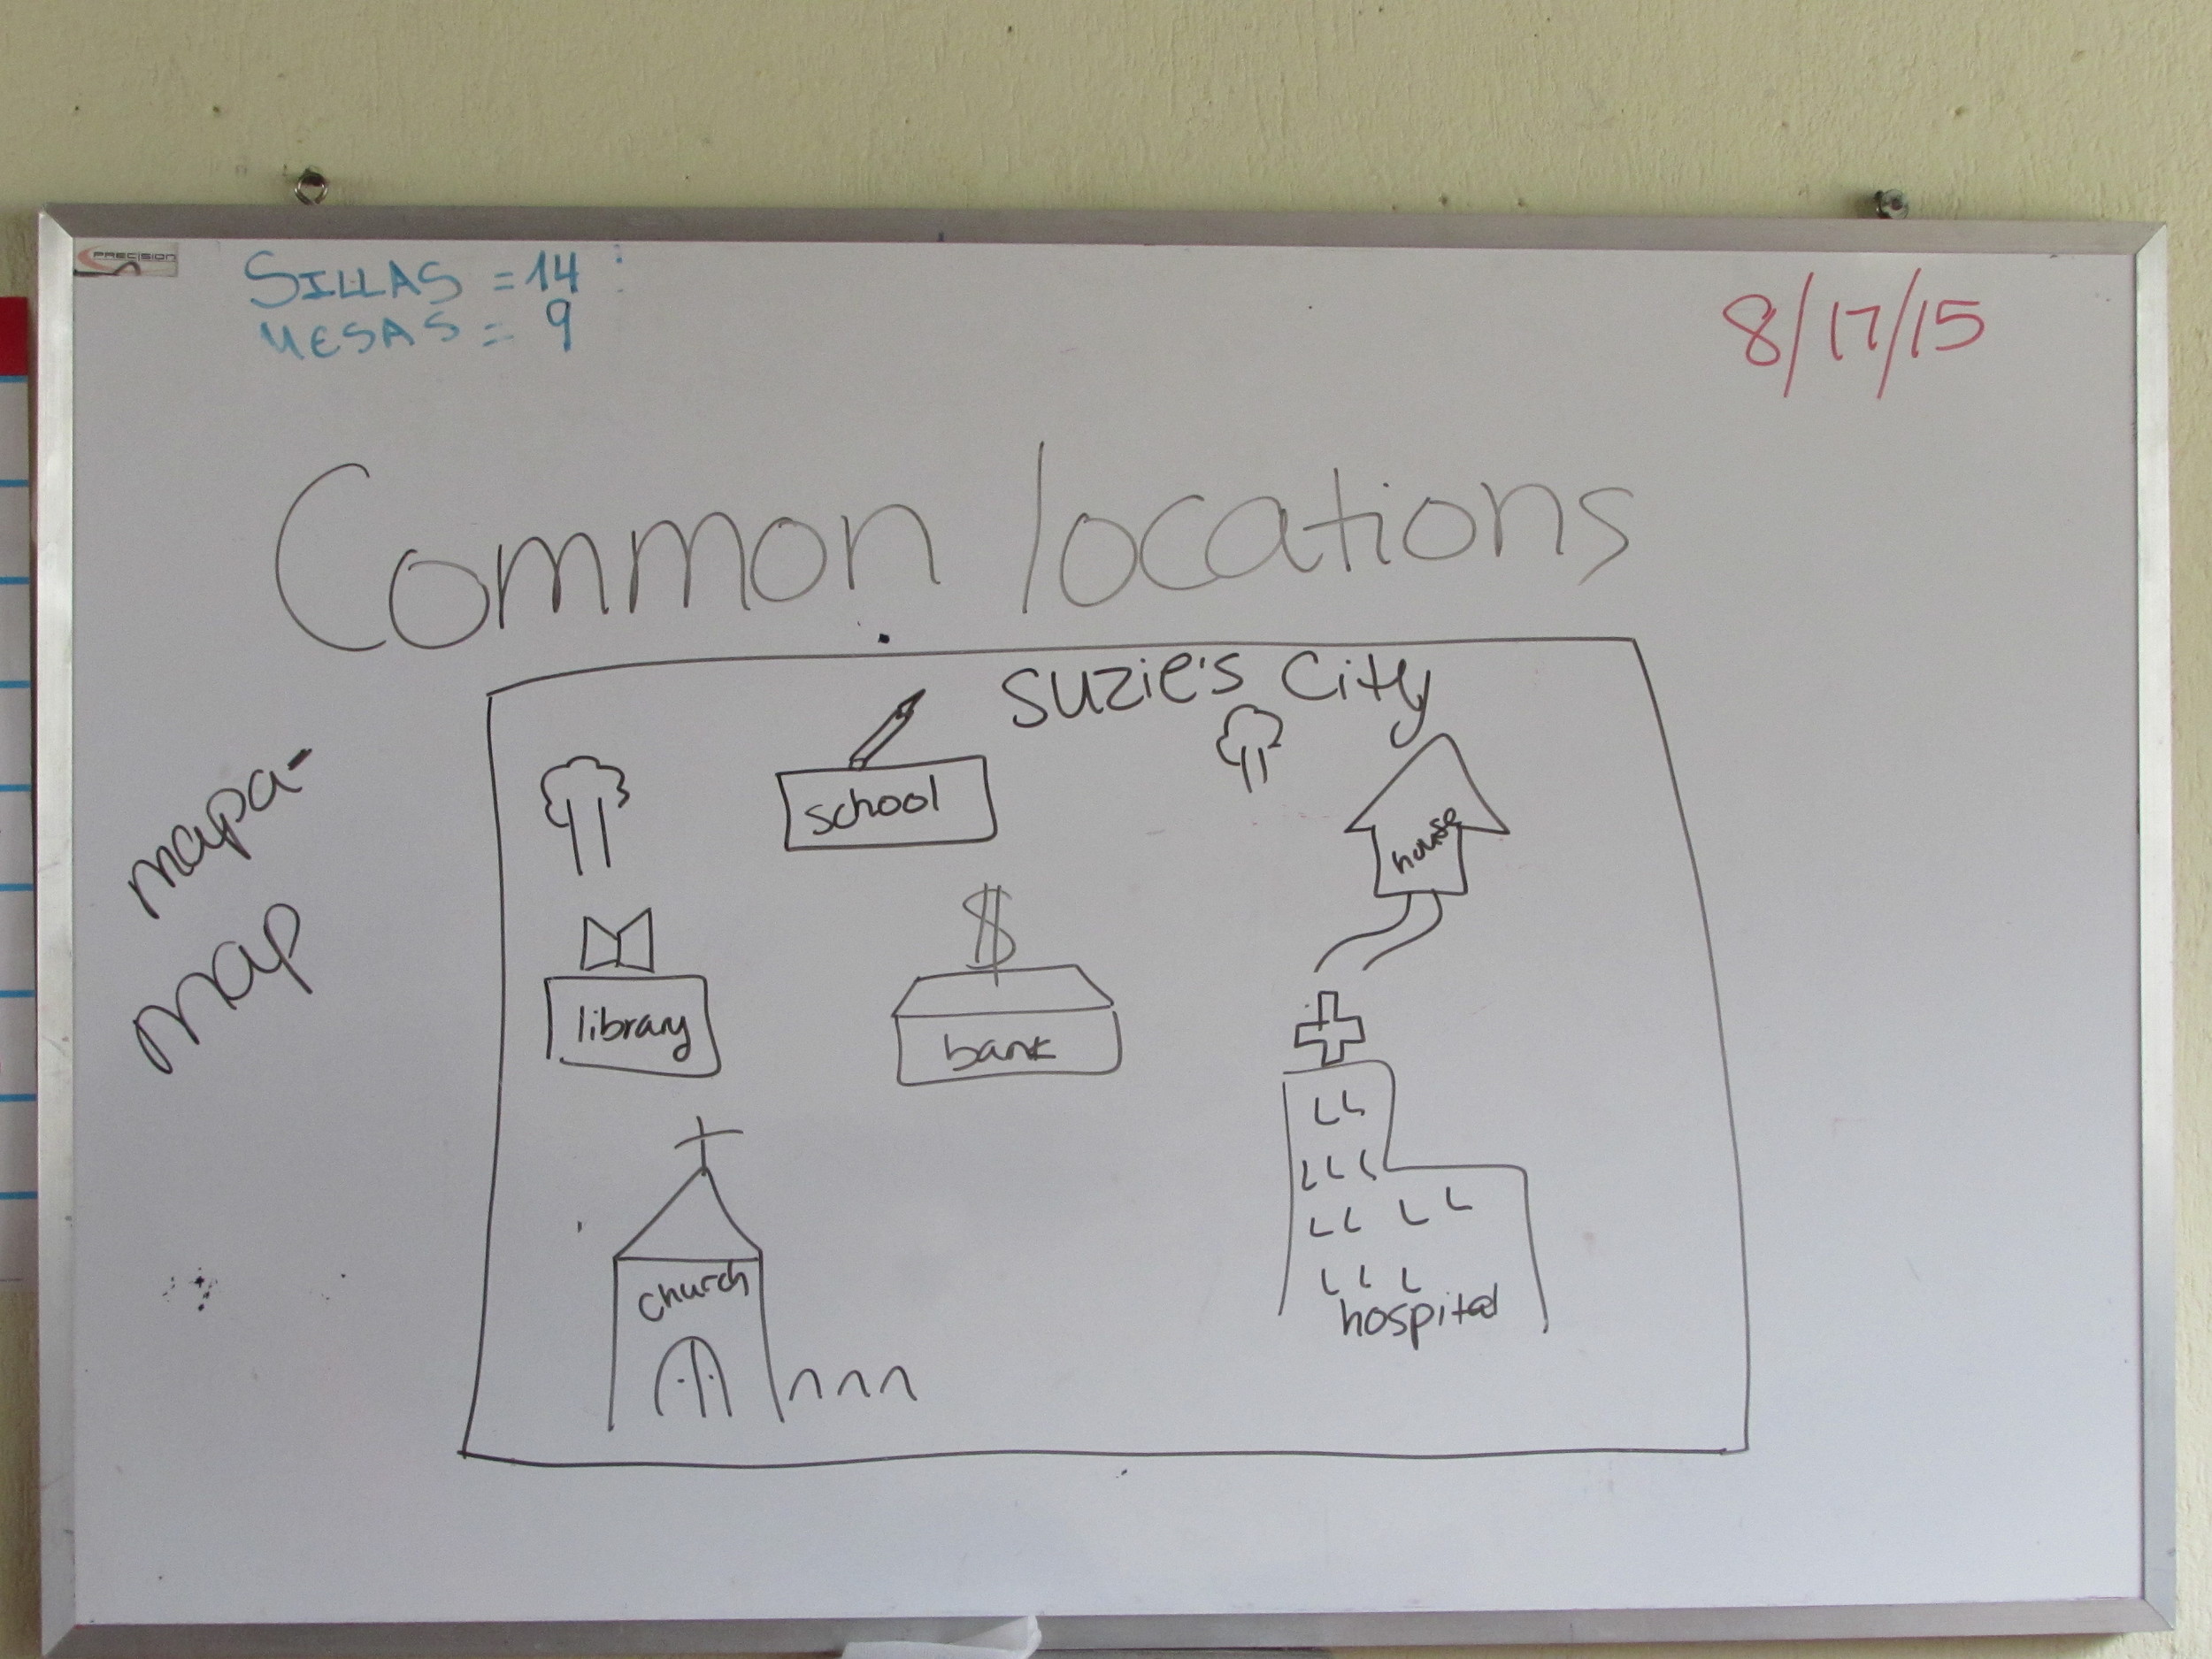 PRECISION
SILLAS = 14
MESAS = 9
8/17/15
Common locations
Suzie's City
mapa-
map
school
house
$
library
bank
church
hospital